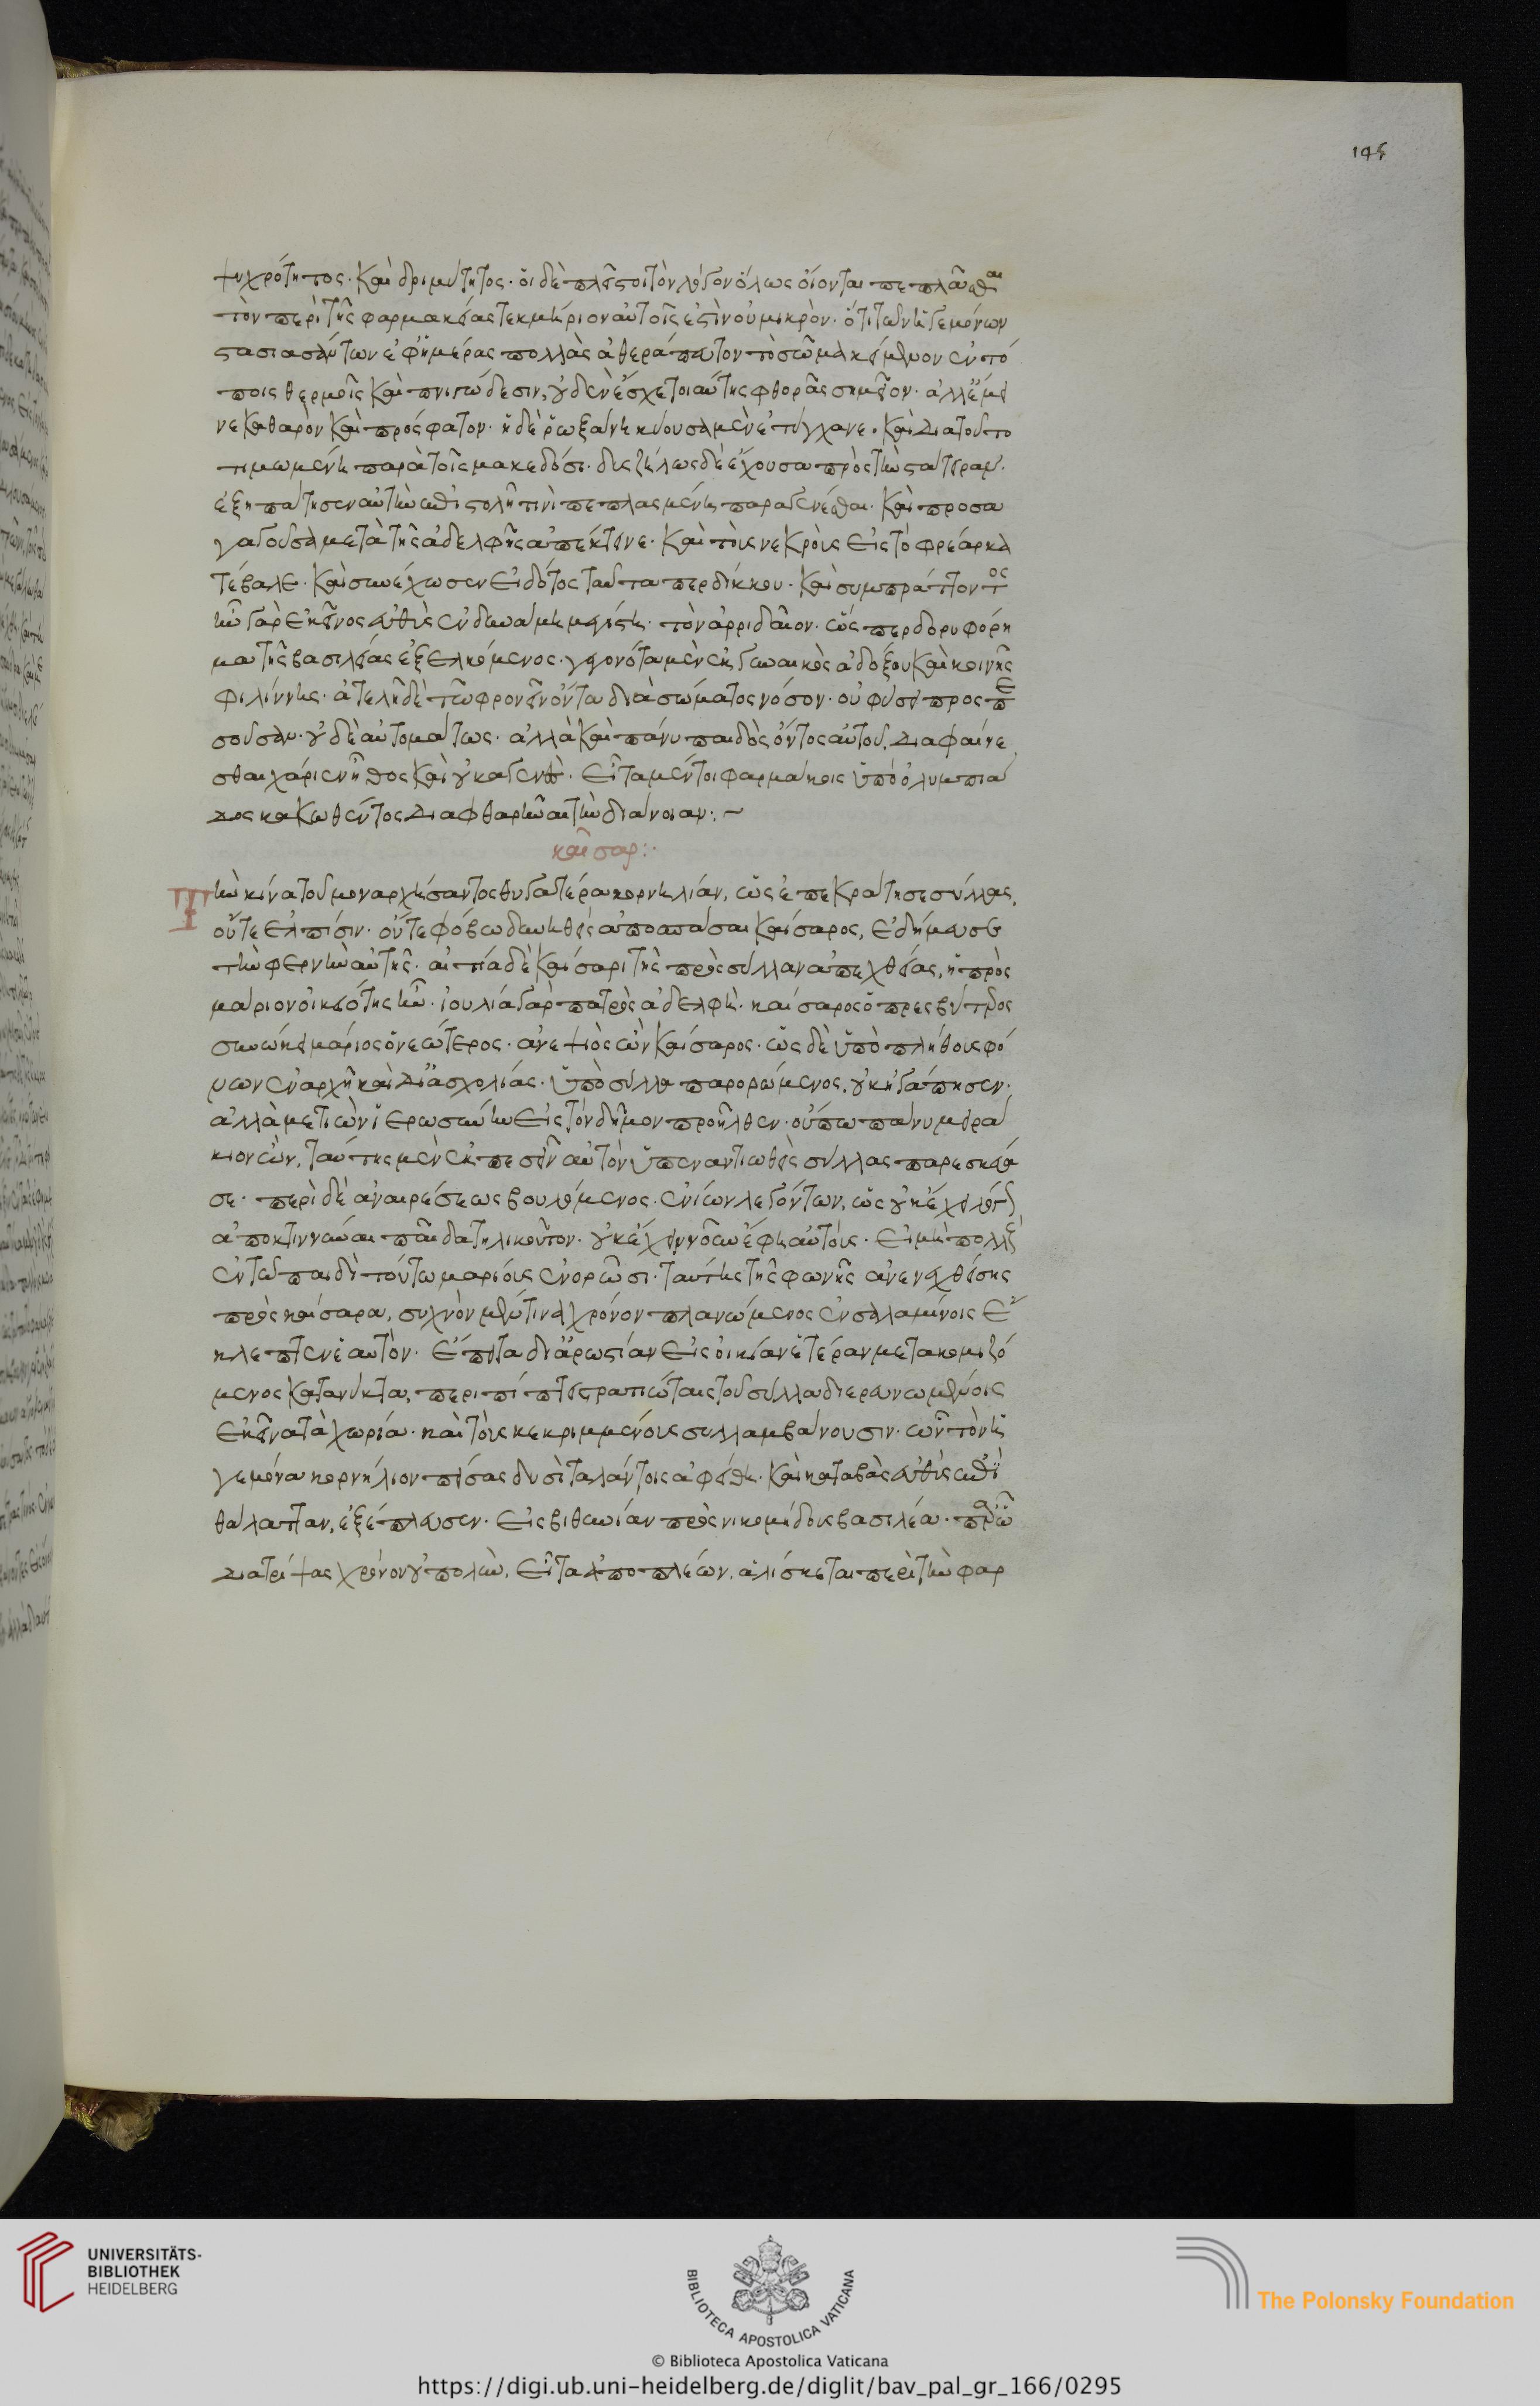 145
ψυχρότητος· καὶ δριμύτητος· οἱ δὲ πλεῖστοι τὸν λόγον ὅλως οἴονται πεπλάσθαι
τὸν περὶ τῆς φαρμακείας τεκμήριον αὐτοῖς ἐστὶν οὐ μικρὸν· ὅτι τῶν ἡγεμόνων
στασιασάντων ἐφ' ἡμέρας πολλὰς ἀθεράπευτον τὸ σῶμα κείμενον ἐν τό
ποις θερμοῖς καὶ πνιγώδεσιν, οὐδὲν ἔσχε τοιαύτης φθορᾶς σημεῖον· ἀλλ' ἔμει
νε καθαρὸν καὶ πρόσφατον· ἡ δὲ ῥωξάνη κύουσα μὲν ἐτύγχανε· καὶ διατοῦτο
τιμωμένη παρὰ τοῖς μακεδόσι· δυσζήλως δὲ ἔχουσα πρὸς τὴν στάτειραν·
ἐξηπάτησεν αὐτὴν ἐπιστολῆ τινὶ πεπλασμένη παραγενέσθαι· καὶ προσα
γαγοῦσα μετὰ τῆς ἀδελφῆς ἀπέκτεινε· καὶ τοὺς νεκροὺς εἰς τὸ φρέαρ κα
τέβαλε· καὶ συνέχωσεν εἰδότος ταῦτα περδίκκου· καὶ συμπράττοντος
ἦν γὰρ ἐκεῖνος εὐθὺς ἐν δυνάμη μεγίστη· τὸν ἀρριδαῖον· ὥσπερ δορυφόρη
μα τῆς βασιλείας ἐξελκόμενος· γεγονότα μὲν ἐκ γυναικὸς ἀδόξου καὶ κοινῆς
φιλίννης· ἀτελῆ δὲ τῶ φρονεῖν ὄντα διὰ σώματος νόσον· οὐ φύσει προσπε
σοῦσαν· οὐδὲ αὐτομάτως· ἀλλὰ καὶ πάνυ παιδὸς ὄντος αὐτοῦ, διαφαίνε
σθαι χάριεν ἦθος καὶ οὐκ ἀγεννὲς· εἶτα μέντοι φαρμάκοις ὑπὸ ὀλυμπιά
δος κακωθέντος διαφθαρῆναι τὴν διάνοιαν:~
καῖσαρ:·
Τὴν κίνα τοῦ μοναρχήσαντος θυγατέρα κορνηλίαν, ὡς ἐπεκράτησε σύλλας,
οὔτε ἐλπίσιν· οὔτε φόβω δυνηθεὶς ἀποσπάσαι καίσαρος, ἐδήμευσε
τὴν φερνὴν αὐτῆς· αἰτία δὲ καίσαρι τῆς πρὸς σύλλαν ἀπεχθείας, ἡ πρὸς
μάριον οἰκειότης ἦν· ἰουλία γὰρ πατρὸς ἀδελφῆ· καίσαρος ὁ πρεσβύτερος
συνώκει μάριος ὁ νεώτερος· ἀνεψιὸς ὢν καίσαρος· ὡς δὲ ὑπὸ πλήθους φό
νων ἐν ἀρχῆ καὶ δι' ἀσχολίας· ὑπὸ σύλλα παρορώμενος, οὐκ ἠγάπησεν·
ἀλλὰ μετιὼν ἱερωσύνην εἰς τὸν δῆμον προῆλθεν· οὔπω πάνυ μειρά
κιον ὢν, ταύτης μὲν ἐκπεσεῖν αὐτὸν ὑπεναντιωθεὶς σύλλας παρεσκεύα
σε· περὶ δὲ ἀναιρέσεως βουλόμενος· ἐνίων λεγόντων, ὡς οὐκ ἔχει λόγον
ἀποκτιννύναι παῖδα τηλικοῦτον· οὐκ ἔχειν νοῦν ἔφη αὐτοὺς· εἰ μὴ πολλοὺς
ἐν τῶ παιδὶ τούτω μαρίους ἐνορῶσι· ταύτης τῆς φωνῆς ἀνενεχθείσης
πρὸς καίσαρα, συχνὸν μέν τινα χρόνον πλανώμενος ἐν σαλαμίνοις ἔ
κλεπτεν ἑαυτὸν· ἔπειτα δι' ἀρωστίαν εἰς οἰκίαν ἑτέραν μετακομιζό
μενος κατανύκτα, περιπίπτει στρατιώταις τοῦ σύλλα διερευνωμένοις
ἐκεῖνα τὰ χωρία· καὶ τοὺς κεκρυμμένους συλλαμβάνουσιν· ὧν τὸν ἡ
γεμόνα κορνήλιον πείσας δυσὶ ταλάντοις ἀφείθη· καὶ καταβὰς εὐθὺς ἐπὶ
θάλατταν, ἐξέπλευσεν· εἰς βιθυνίαν πρὸς νικομήδους βασιλέα· παρ' ὧ
διατρίψας χρόνον οὐ πολὺν, εἶτα ἀποπλέων, ἁλίσκεται περὶ τὴν φαρ
UNIVERSITÄTS-
BIBLIOTHEK
HEIDELBERG
BIBLIOTECA APOSTOLICA VATICANA
The Polonsky Foundation
© Biblioteca Apostolica Vaticana
https://digi.ub.uni-heidelberg.de/diglit/bav_pal_gr_166/0295